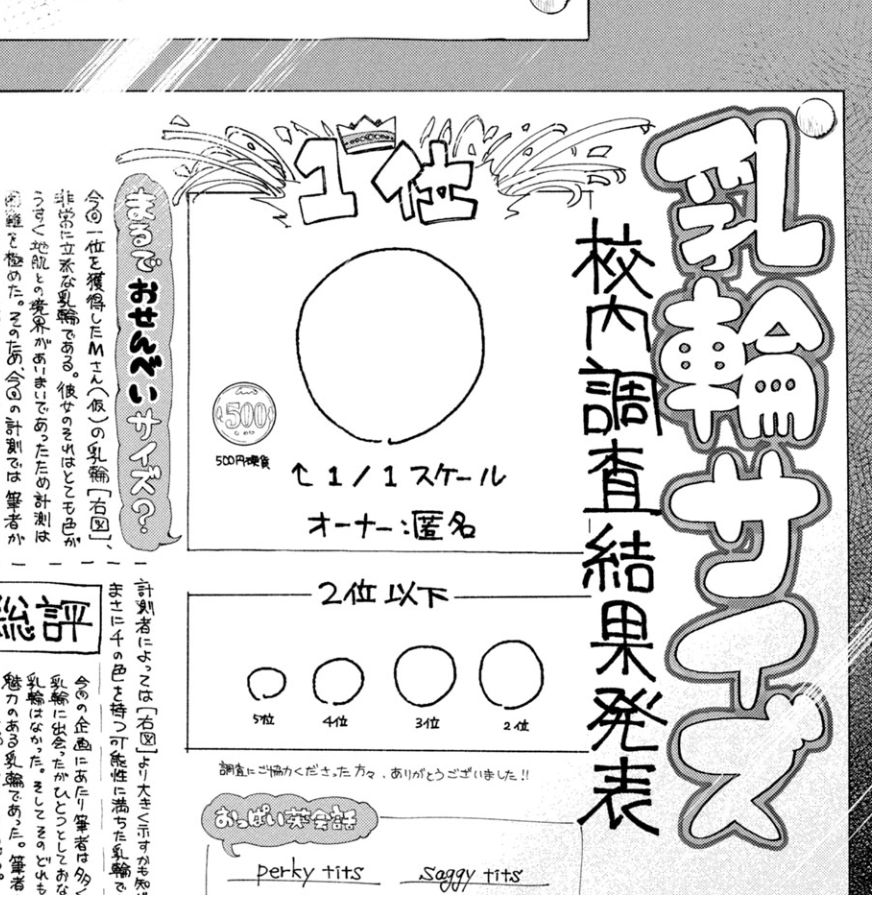 乳輪サイズ
校内調査結果発表
1位
500
500円硬貨
↑1/1スケール
オーナー:匿名
まるでおせんべいサイズ?
今回一位を獲得したMさん(仮)の乳輪[右図]、
非常に立派な乳輪である。彼女のそれはとても色が
うすく地肌との境界があいまいであったため計測は
困難を極めた。そのため、今回の計測では筆者が
2位以下
5位
4位
3位
2位
調査にご協力くださった方々、ありがとうございました!!
計測者によっては[右図]より大きく示すかも知
まさに千の色を持つ可能性に満ちた乳輪で
総評
今回の企画にあたり筆者は多く
乳輪に出会ったがひとつとしておな
乳輪はなかった。そしてそのどれも
魅力のある乳輪であった。筆者
おっぱい英会話
perky tits
saggy tits